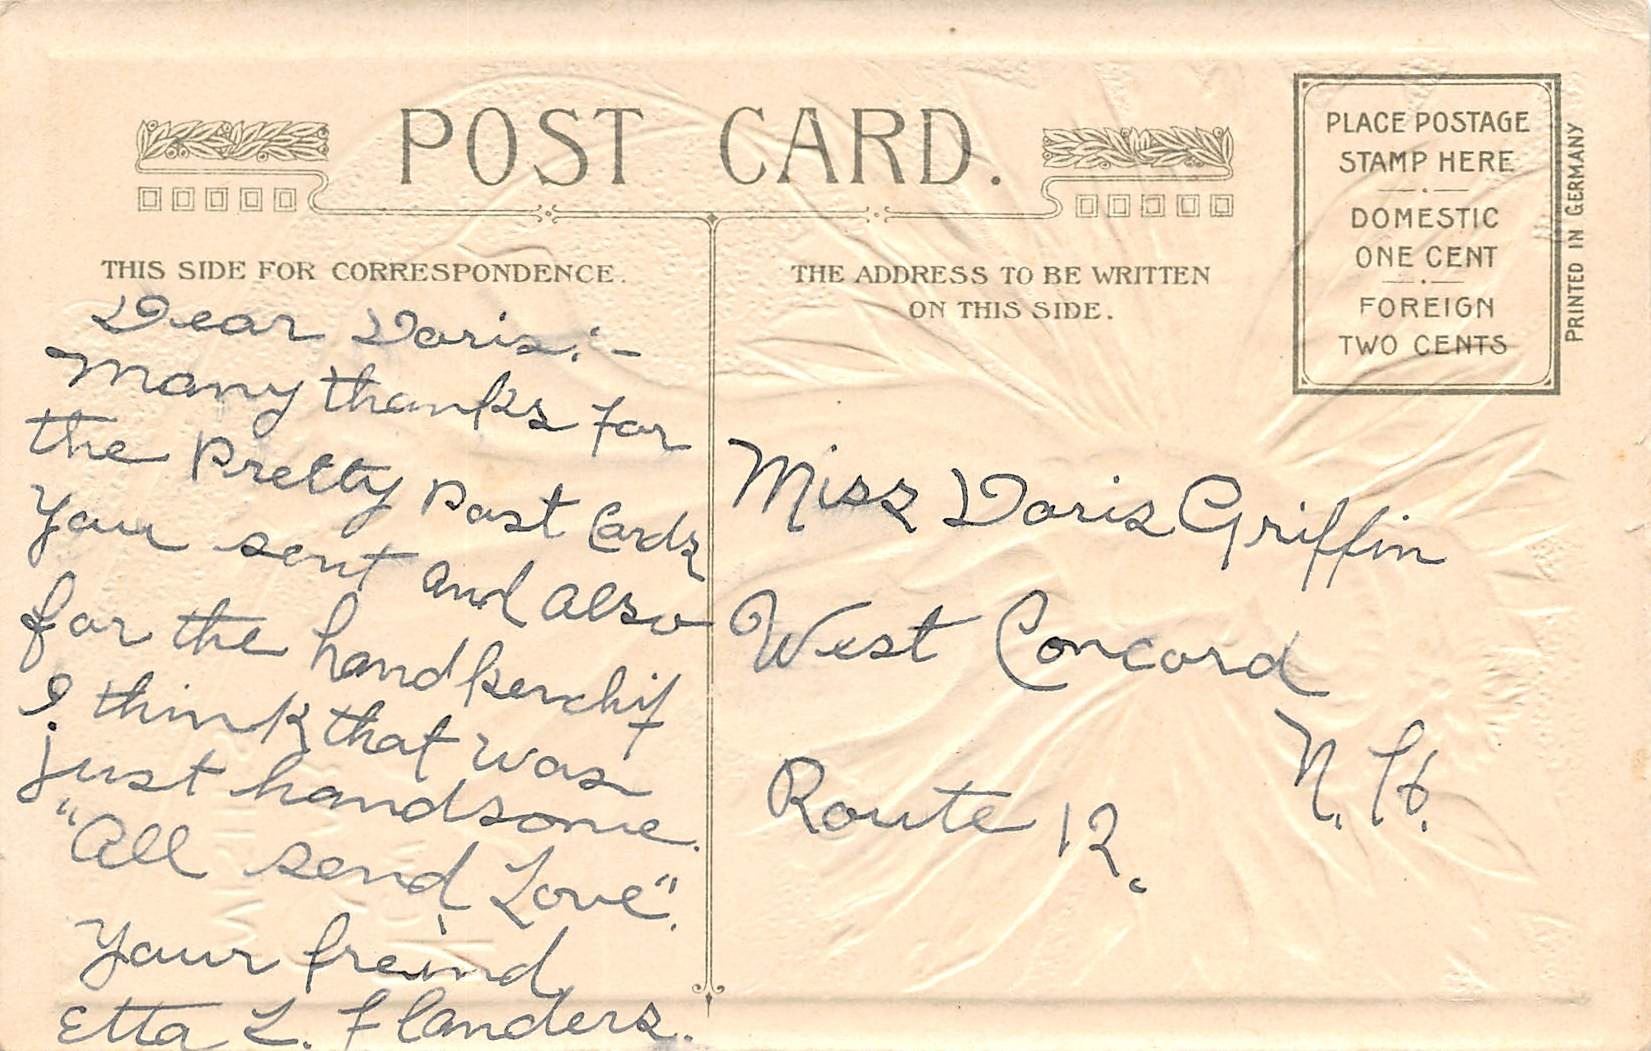 POST CARD.
THIS SIDE FOR CORRESPONDENCE.
Dear Doris:-
Many thanks for
the Pretty Post Cards
you sent and also
for the handkerchif
I think that was
just handsome.
"All send Love".
Your freind
Etta L. Flanders.
THE ADDRESS TO BE WRITTEN
ON THIS SIDE.
Miss Doris Griffin
West Concord
N. H.
Route 12.
PLACE POSTAGE
STAMP HERE
DOMESTIC
ONE CENT
FOREIGN
TWO CENTS
PRINTED IN GERMANY